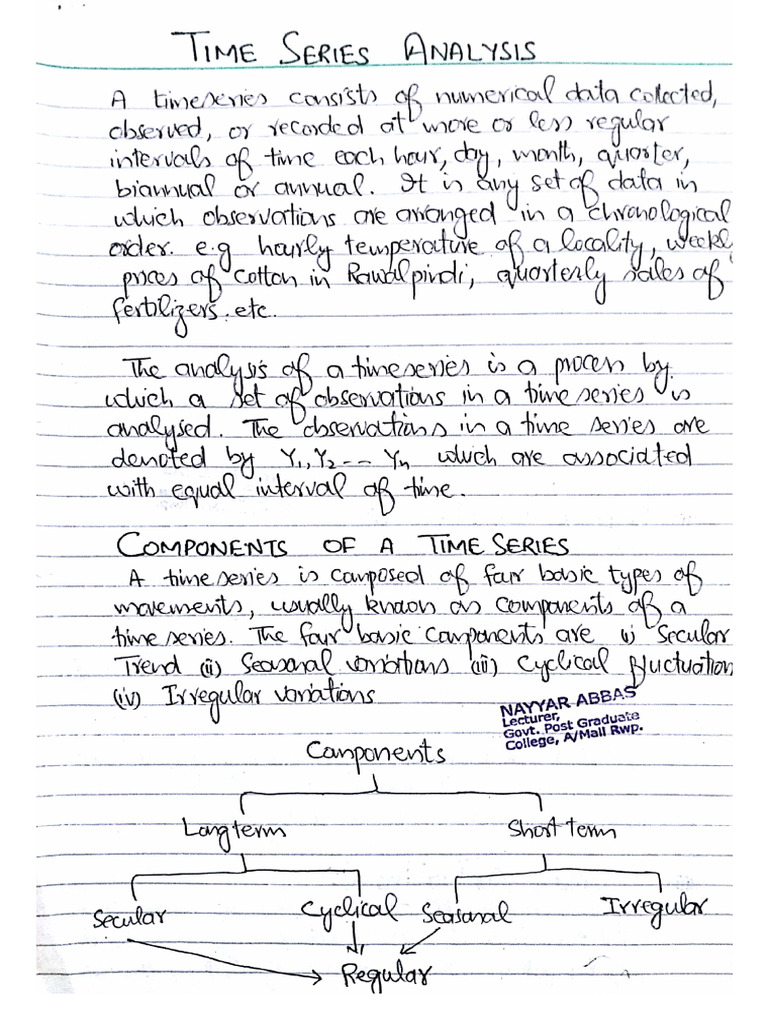 TIME SERIES ANALYSIS
A timeseries consists of numerical data collected,
observed, or recorded at more or less regular
intervals of time each hour, day, month, quarter,
biannual or annual. It is any set of data in
which observations are arranged in a chronological
order. e.g hourly temperature of a locality, weekl
prices of cotton in Rawalpindi, quarterly sales of
fertilizers. etc.
The analysis of a timeseries is a process by
which a set of observations in a time series is
analysed. The observations in a time series are
denoted by Y1, Y2 --- Yn which are associated
with equal interval of time.
COMPONENTS OF A TIME SERIES
A time series is composed of four basic types of
movements, usually known as components of a
time series. The four basic components are i) Secular
Trend (ii) Seasonal variations (iii) Cyclical fluctuation
(iv) Irregular variations
NAYYAR ABBAS
Lecturer,
Govt. Post Graduate
College, A/Mall Rwp.
Components
Long term Short term
Secular Cyclical Seasonal Irregular
Regular